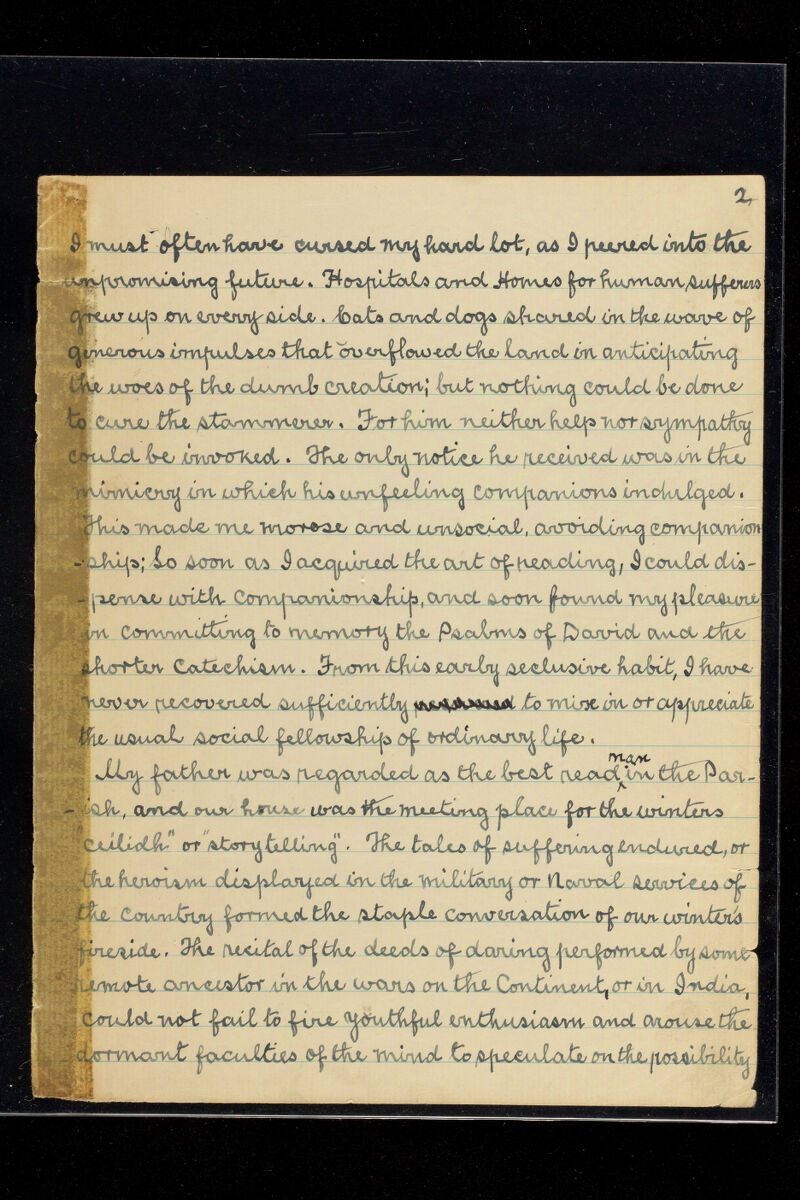 2,
I must often have cursed my hard lot, as I peered into the
unpromising future. Hospitals and Homes for human sufferers
grew up on every side. Cats and dogs shared in the wave of
generous impulses that overflowed the land in anticipating
the woes of the dumb creation; but nothing could be done
to cure the stammerer. For him neither help nor sympathy
could be invoked. The only notice he received was in the
mimicry in which his unfeeling companions indulged.
This made me morose and unsocial, avoiding companion
-ship; So soon as I acquired the art of reading, I could dis-
-pense with companionship, and soon found my pleasure
in committing to memory the Psalms of David and the
shorter Catechism. From this early seclusive habit, I have
never recovered sufficiently to mix in or appreciate
the usual social fellowship of ordinary life.
My father was regarded as the best read man in the Par-
-ish, and our house was the meeting place for the winters
"ceilidh" or "storytelling". The tales of suffering endured, or
the heroism displayed in the military or Naval services of
the Country formed the staple conversation of our winter's
fireside. The recital of the deeds of daring performed by some
remote ancestor in the wars on the Continent, or in India,
could not fail to fire youthful enthusiasm and arouse the
dormant faculties of the mind to speculate on the possibility